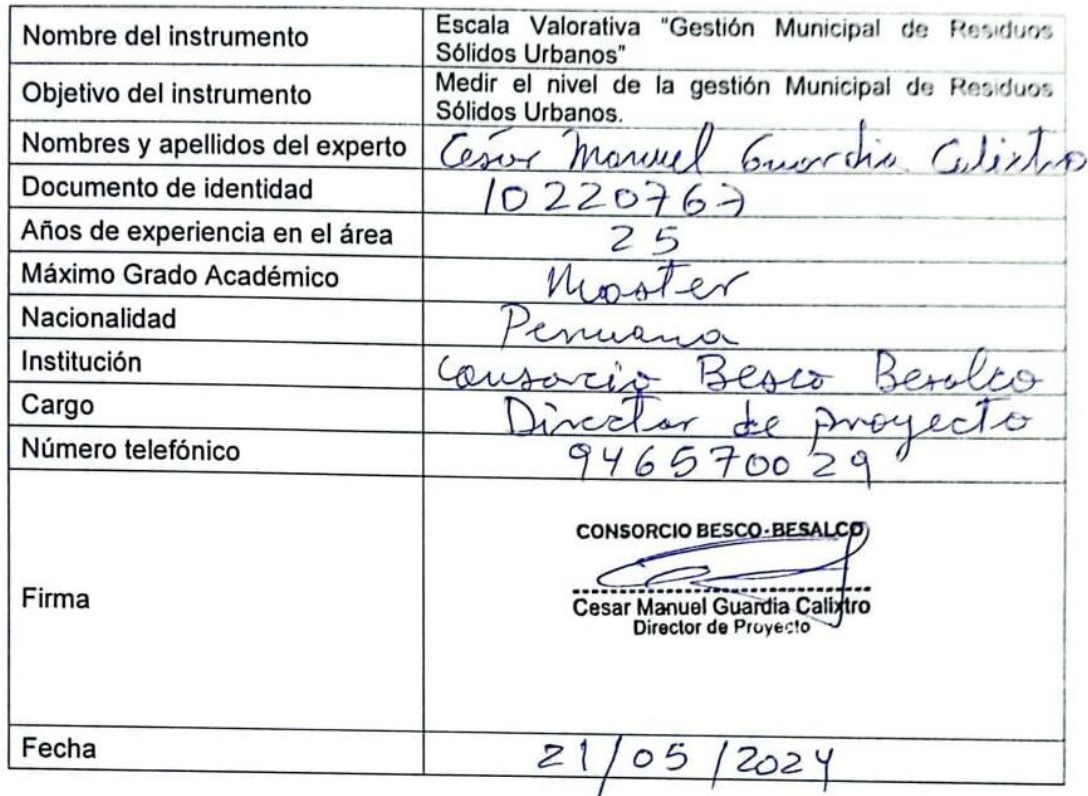 Nombre del instrumento
Escala Valorativa "Gestión Municipal de Residuos
Sólidos Urbanos"
Objetivo del instrumento
Medir el nivel de la gestión Municipal de Residuos
Sólidos Urbanos.
Nombres y apellidos del experto
César Manuel Guardia Calixtro
Documento de identidad
10220767
Años de experiencia en el área
25
Máximo Grado Académico
Master
Nacionalidad
Peruana
Institución
Consorcio Besco Besalco
Cargo
Director de proyecto
Número telefónico
946570029
Firma
CONSORCIO BESCO-BESALCO
Cesar Manuel Guardia Calixtro
Director de Proyecto
Fecha
21/05/2024